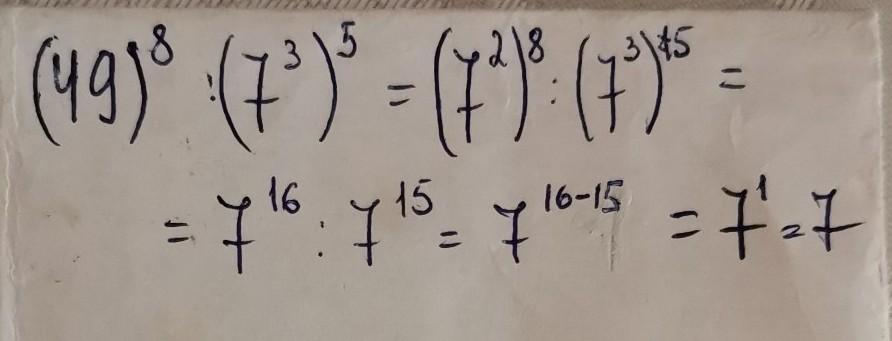 (49)⁸ : (7³)⁵ = (7²)⁸ : (7³)⁵ =
= 7¹⁶ : 7¹⁵ = 7¹⁶⁻¹⁵ = 7¹ = 7